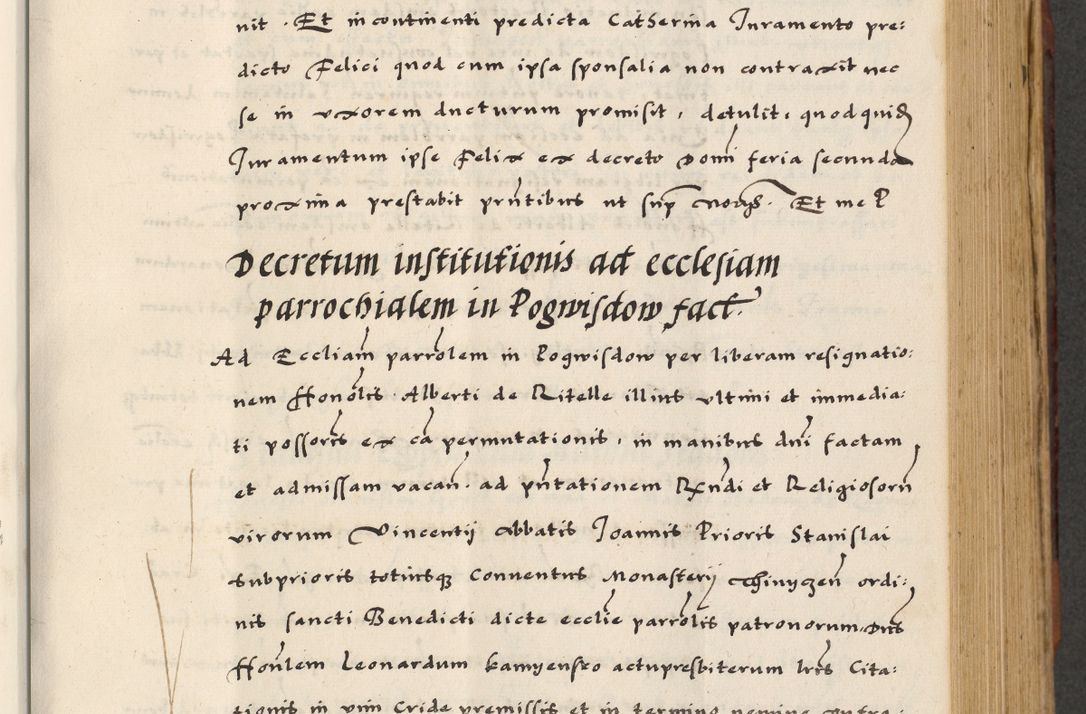 nit . Et incontinenti predicta Catherina Juramento pre:
dicto Felici quod cum ipsa sponsalia non contraxit nec
se in uxorem ducturum promisit, detulit, quodquid
Juramentum ipse Felix ex decreto Domi feria secunda
proxima prestabit pntibus ut sup Et me P
Decretum institutionis ad ecclesiam
parrochialem in Pogwisdow fact.
Ad Eccliam parrolem in Pogwisdow per liberam resignatio:
nem Honolis Alberti de Ritelle illius ultimi et immedia:
ti possoris ex ca permutationis, in manibus dni factam
et admissam vacan. ad pntationem Rndi et Religiosorum
virorum Vincentij Abbatis Joannis Prioris Stanislai
Subprioris totiusq Conventus Monasterij Thinyczen ordi:
nis sancti Benedicti dicte ecclie parrolis patronorum, Dns
Honlem Leonardum kamyensko actupresbiterum lris Cita:
tionis in vim Cride premissis et in termino nomine contra: